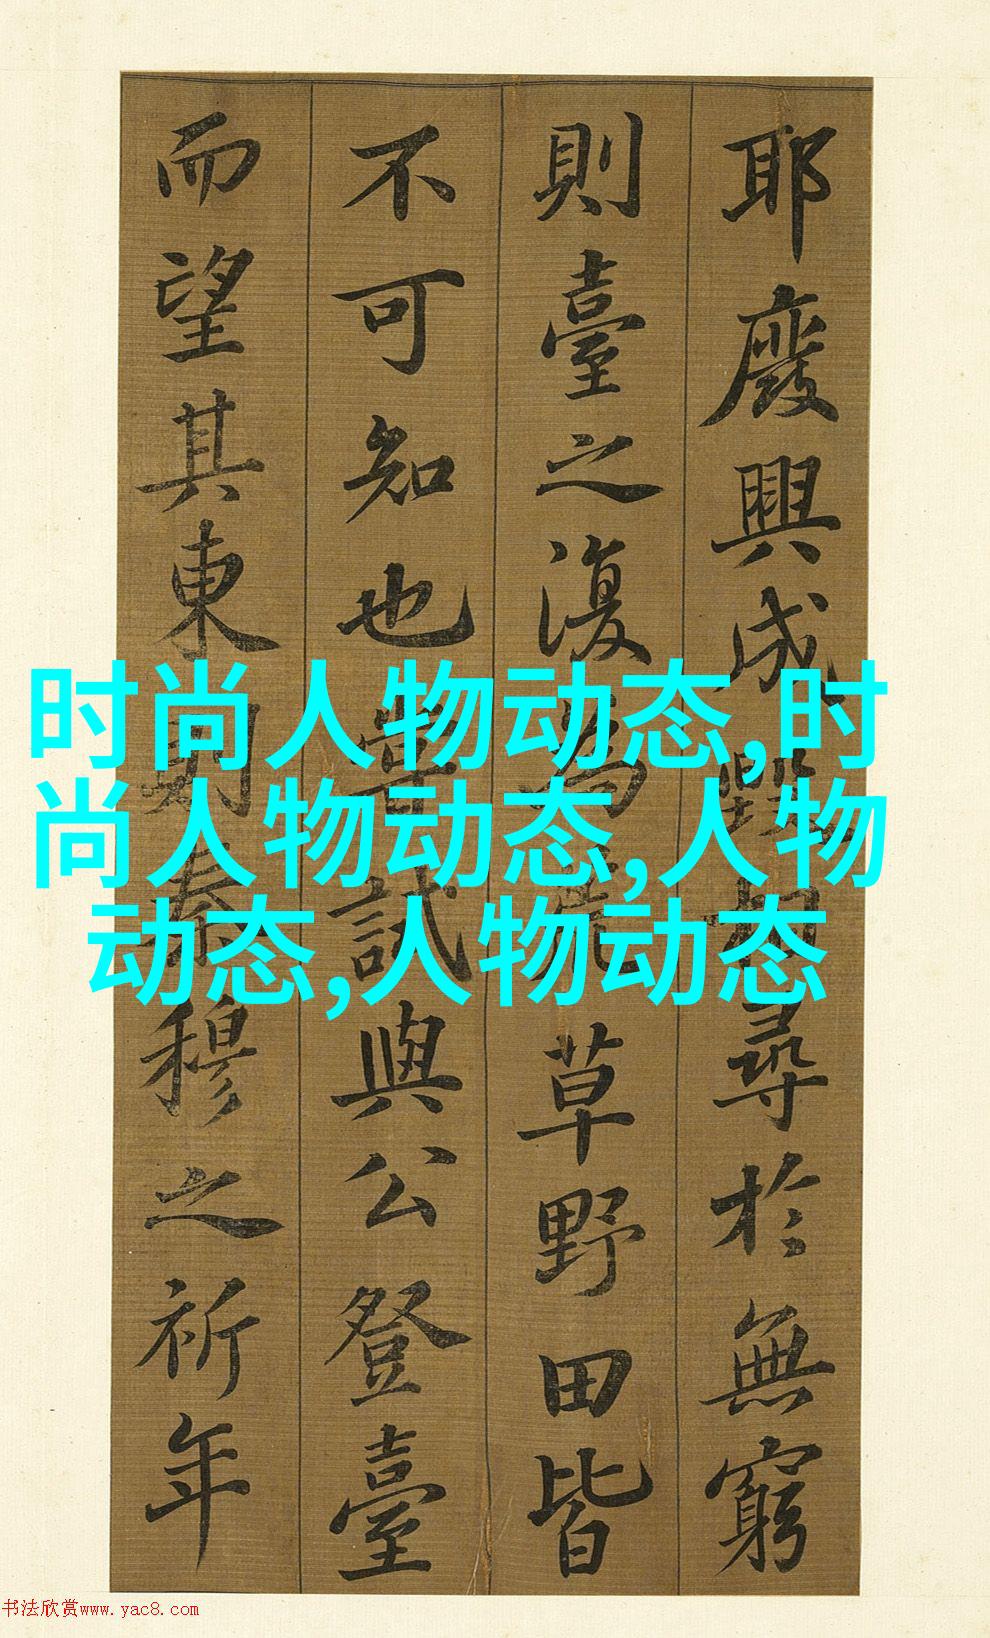 耶廢興成毀相尋於無窮
則臺之復為荒草野田皆
不可知也嘗試與公登臺
而望其東則秦穆之祈年
时尚人物动态,时
尚人物动态,人物
动态,人物动态
书法欣赏www.yac8.com